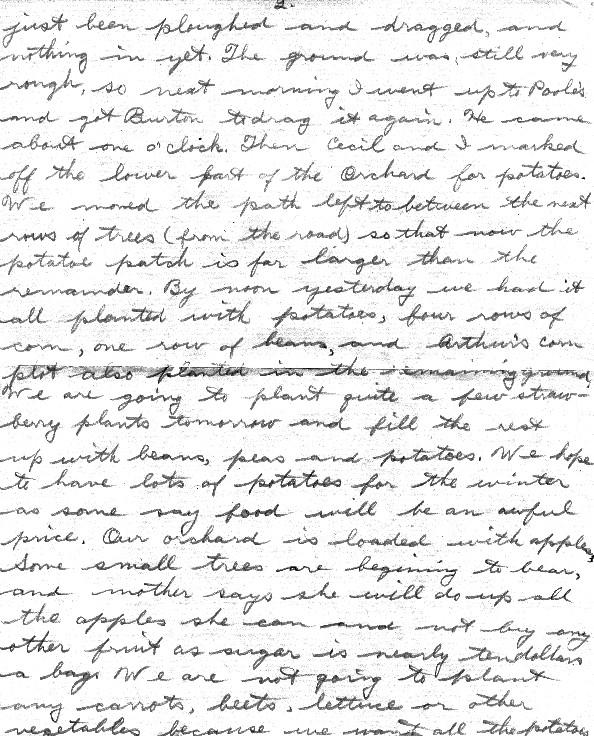 2.
just been ploughed and dragged, and
nothing in yet. The ground was, still very
rough, so next morning I went up to Poole's
and got Burton to drag it again. He came
about one o'clock. Then Cecil and I marked
off the lower part of the Orchard for potatoes.
We moved the path left to between the next
rows of trees (from the road) so that now the
potatoe patch is far larger than the
remainder. By noon yesterday we had it
all planted with potatoes, four rows of
corn, one row of beans, and Arthur's corn
plot also planted in the remaining ground.
We are going to plant quite a few straw-
berry plants tomorrow and fill the rest
up with beans, peas and potatoes. We hope
to have lots of potatoes for the winter
as some say food will be an awful
price. Our orchard is loaded with apples,
Some small trees are begining to bear,
and mother says she will do up all
the apples she can and not buy any
other fruit as sugar is nearly ten dollars
a bag. We are not going to plant
any carrots, beets, lettuce or other
vegetables because we want all the potatoes